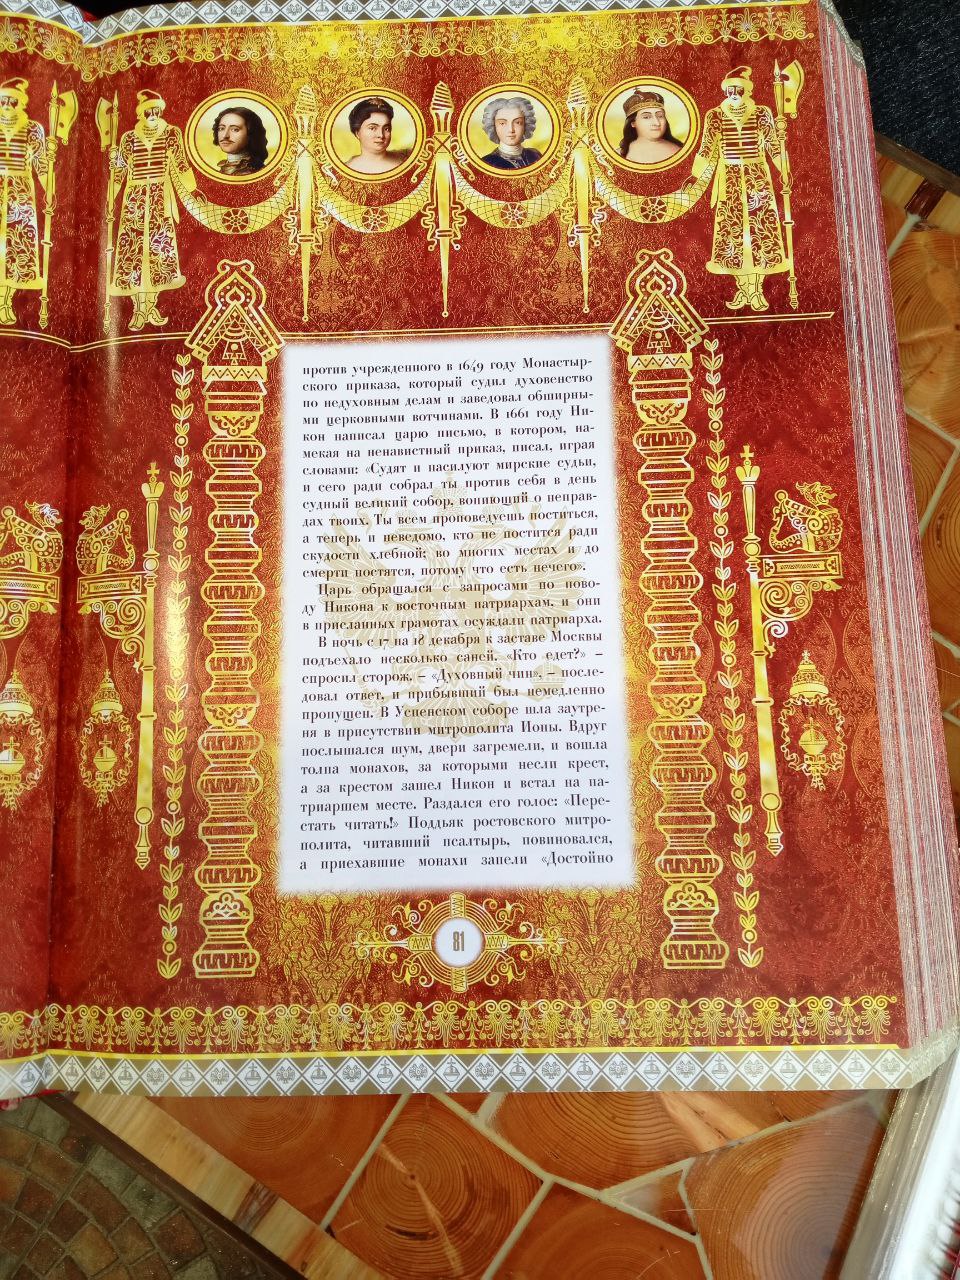 против учрежденного в 1649 году Монастыр-
ского приказа, который судил духовенство
по недуховным делам и заведовал обширны-
ми церковными вотчинами. В 1661 году Ни-
кон написал царю письмо, в котором, на-
мекая на ненавистный приказ, писал, играя
словами: «Судят и насилуют мирские судьи,
и сего ради собрал ты против себя в день
судный великий собор, вопиющий о неправ-
дах твоих. Ты всем проповедуешь поститься,
а теперь и неведомо, кто не постится ради
скудости хлебной; во многих местах и до
смерти постятся, потому что есть нечего».
Царь обращался с запросами по пово-
ду Никона к восточным патриархам, и они
в присланных грамотах осуждали патриарха.
В ночь с 17 на 18 декабря к заставе Москвы
подъехало несколько саней. «Кто едет?» –
спросил сторож. – «Духовный чин», – после-
довал ответ, и прибывший был немедленно
пропущен. В Успенском соборе шла заутре-
ня в присутствии митрополита Ионы. Вдруг
послышался шум, двери загремели, и вошла
толпа монахов, за которыми несли крест,
а за крестом зашел Никон и встал на па-
триаршем месте. Раздался его голос: «Пере-
стать читать!» Поддьяк ростовского митро-
полита, читавший псалтырь, повиновался,
а приехавшие монахи запели «Достойно
81